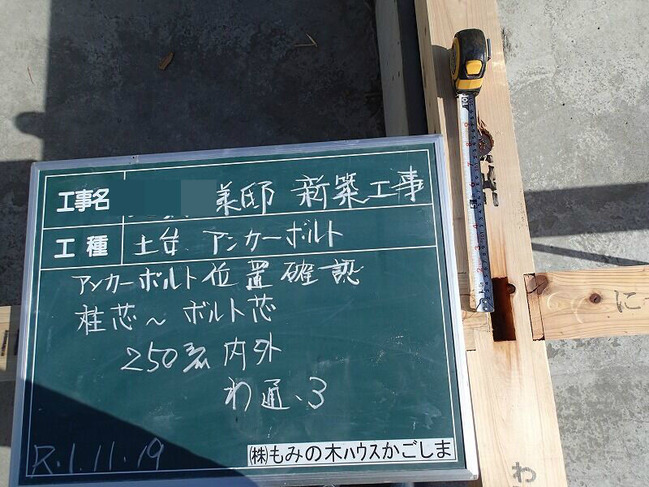 工事名 業邸 新築工事
工種 土台 アンカーボルト
アンカーボルト位置確認
柱芯～ボルト芯
250㎜内外
わ通.3
R.1.11.19
㈱もみの木ハウスかごしま
わ
に